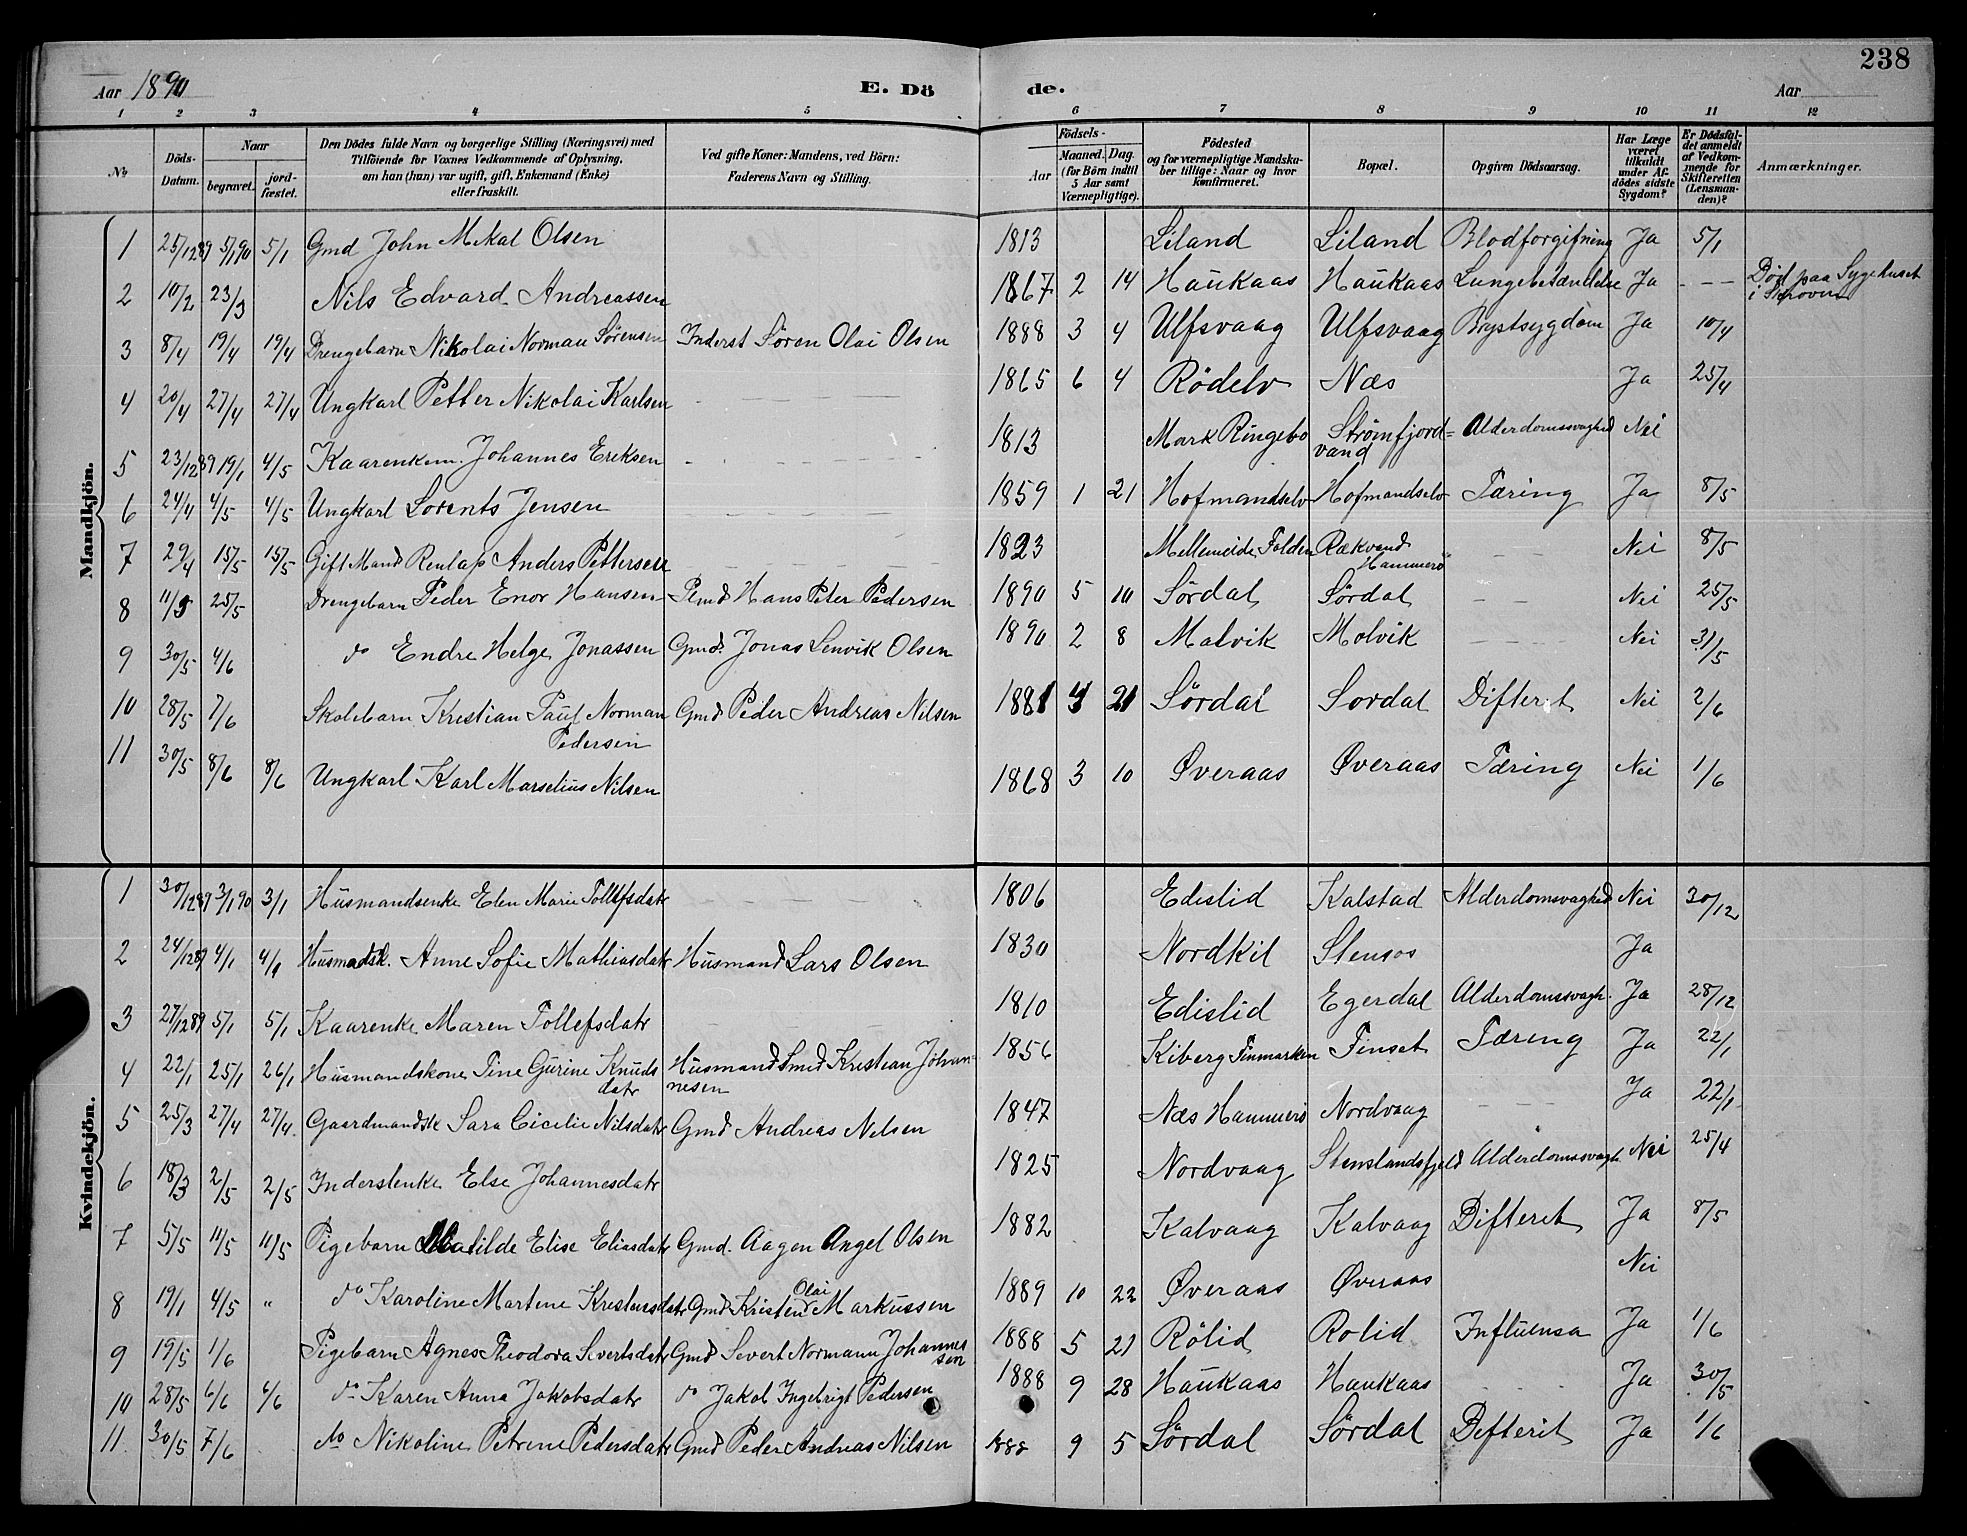 238
Aar 1890 E. Dö de. Aar
1 2 3 4 5 6 7 8 9 10 11 12
№ Döds-Datum. Naar begravet. jord-fæstet. Den Dödes fulde Navn og borgerlige Stilling (Næringsvei) med Tilföiende for Voxnes Vedkommende af Oplysning, om han (hun) var ugift, gift, Enkemand (Enke) eller fraskilt. Ved gifte Koner: Mandens, ved Börn: Faderens Navn og Stilling. Födsels- Aar Maaned. Dag. (for Börn indtil 5 Aar samt Værnepligtige). Födested og for værnepligtige Mandskaber tillige: Naar og hvor konfirmeret. Bopæl. Opgiven Dödsaarsag. Har Læge været tilkaldt under Afdödes sidste Sygdom? Er Dödsfaldet anmeldt af Vedkommende for Skifteretten (Lensmanden)? Anmærkninger.
Mandkjön.
1 25/12 89 5/1 90 5/1 Gmd John Mikal Olsen 1813 Liland Liland Blodforgifning Ja 5/1
2 10/2 23/3 Nils Edvard Andreassen 1867 2 14 Haukaas Haukaas Lungebetændelse Ja - - - Død paa Sygehuset i Skroven
3 8/4 19/4 19/4 Drengebarn Nikolai Norman Sørensen Inderst Sören Olai Olsen 1888 3 4 Ulfsvaag Ulfsvaag Brystsygdom Ja 10/4
4 20/4 27/4 27/4 Ungkarl Petter Nikolai Karlsen 1865 6 4 Rödelv Næs Ja 25/4
5 23/12 89 19/1 4/5 Kaarenkem. Johannes Ereksen 1813 Mark Ringebo Strömfjord= vand Alderdomssvaghed Nei
6 24/4 4/5 4/5 Ungkarl Lorents Jensen 1859 1 21 Hofmandselv Hofmandselv Tæring Ja 8/5
7 29/4 15/5 15/5 Gift Mand Renlap Anders Pettersen 1823 Folden Rækvand Hammerö - - Nei 8/5
8 11/5 25/5 Drengebarn Peder Enor Hansen Pmd Hans Peter Pedersen 1890 5 10 Sördal Sördal - - Nei 25/5
9 30/5 4/6 do Endre Helge Jonassen Gmd. Jonas Lenvik Olsen 1890 2 8 Malvik Molvik - - - Nei 31/5
10 28/5 7/6 Skolebarn Kristian Paul Norman Pedersen Gmd Peder Andreas Nilsen 1881 4 21 Sördal Sordal Difterit Nei 2/6
11 30/5 8/6 8/6 Ungkarl Karl Marselius Nilsen 1868 3 10 Øveraas Øveraas Tæring Nei 1/6
Kvindekjön.
1 30/12 89 3/1 90 3/1 Husmandsenke Elen Marie Tollefsdatr 1806 Edislid Kalstad Alderdomsvaghed Nei 30/12
2 24/12 89 4/1 4/1 Husmadsk. Anne Sofie Mathiasdatr Husmand Lars Olsen 1830 Nordkil Stensos Ja
3 27/12 89 5/1 5/1 Kaarenke Maren Tollefsdatr 1810 Edislid Egerdal Alderdomssvagh. Ja 28/12
4 22/1 25/1 26/1 Husmandskone Tine Gurine Knuds datr Husmand Smed Kristian Johan= nesen 1856 Kiberg Finmarken Finset Tæring Ja 22/1
5 25/3 27/4 27/4. Gaardmandsk Sara Cicilie Nilsdatr Gmd Andreas Nelsen 1847 Næs Hammerö Nordvaag - - - Ja 22/1
6 18/3 2/5 2/5 Inderstenke Else Johannesdatr 1825 Nordvaag Stenslandsfjeld Alderdomssvagh Nei 25/4
7 5/5 11/5 11/5 Pigebarn Matilde Elise Eliasdatr Gmd. Aagen Angel Olsen 1882 Kalvaag Kalvaag Difterit Ja 8/5
8 19/1 4/5 " do Karoline Martene Kristensdatr Gmd Kristen Olai Markussen 1889 10 22 Øveraas Øveraas Nei
9 19/5 1/6 Pigebarn Agnes Theodora Sivertsdatr Gmd Severt Normann Johannes sen 1888 5 21 Rölid Rolid Influensa Ja 1/6
10 28/5 6/6 6/6 do Karen Anna Jakobsdatr do Jakob Ingebrigt Pedersen 1888 9 28 Haukaas Haukaas Ja 30/5
11 30/5 7/6 do Nikoline Petrene Pedersdatr Gmd Peder Andreas Nilsen 1888 9 5 Sördal Sördal Difterit Ja 1/6